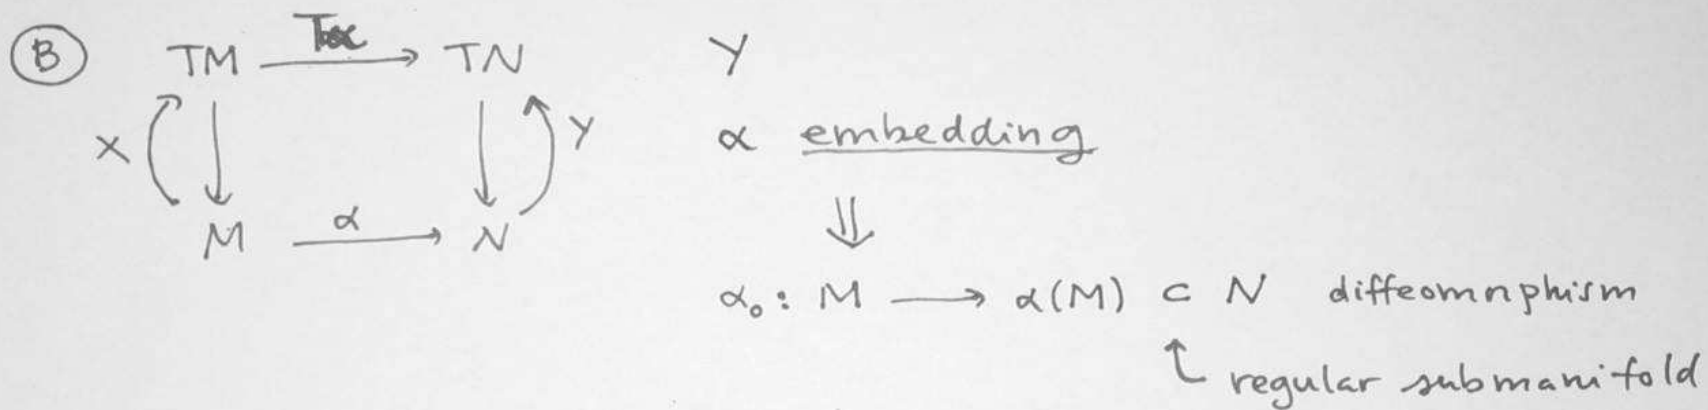 Ⓑ TM Tα TN Y
X Y α embedding
⇓
M α N
α₀ : M ⟶ α(M) ⊂ N diffeomorphism
↑ regular submanifold